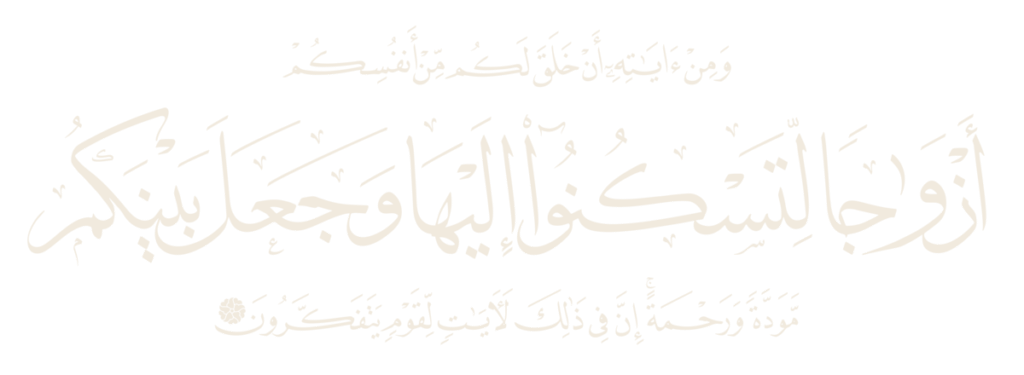 وَمِنْ ءَايَٰتِهِۦٓ أَنْ خَلَقَ لَكُم مِّنْ أَنفُسِكُمْ
أَزْوَٰجًا لِّتَسْكُنُوٓا۟ إِلَيْهَا وَجَعَلَ بَيْنَكُم
مَّوَدَّةً وَرَحْمَةً ۚ إِنَّ فِى ذَٰلِكَ لَءَايَٰتٍ لِّقَوْمٍ يَتَفَكَّرُونَ